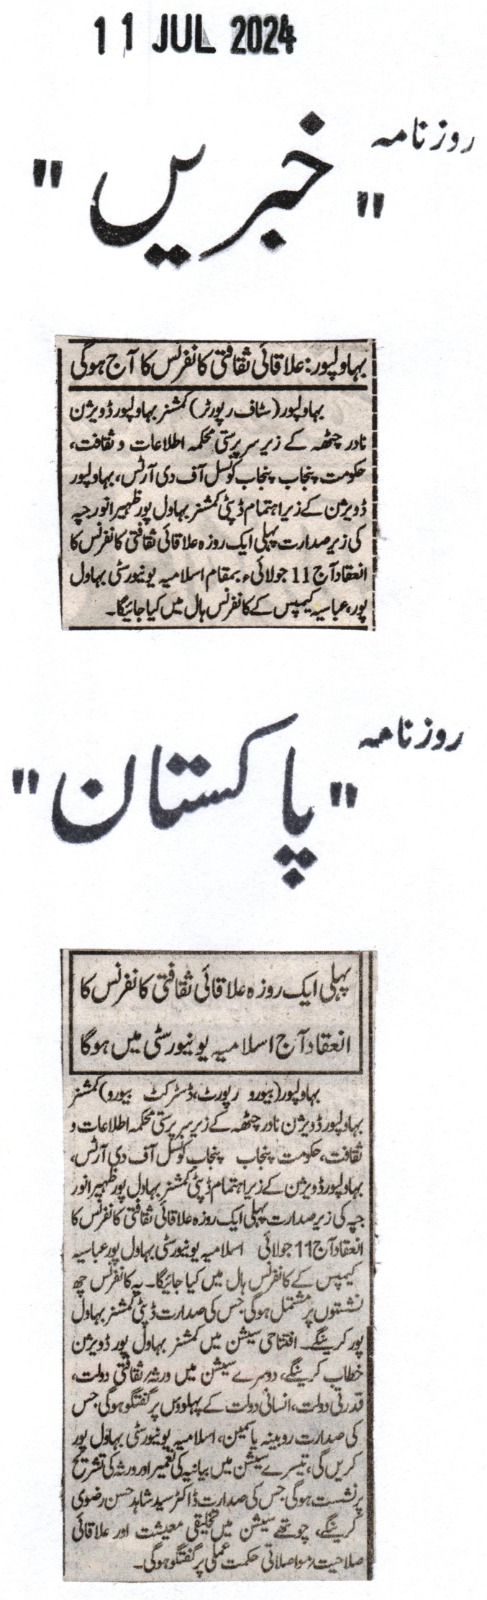 11 JUL 2024
روزنامہ
"خبریں"
بہاولپور: علاقائی ثقافتی کانفرنس کا آج ہوگی
بہاولپور (سٹاف رپورٹر) کمشنر بہاولپور ڈویژن
نادر چٹھہ کے زیر سرپرستی محکمہ اطلاعات و ثقافت،
حکومت پنجاب پنجاب کونسل آف دی آرٹس، بہاولپور
ڈویژن کے زیر اہتمام ڈپٹی کمشنر بہاول پور ظہیر انور جپہ
کی زیر صدارت پہلی ایک روزہ علاقائی ثقافتی کانفرنس کا
انعقاد آج 11 جولائی ء بمقام اسلامیہ یونیورسٹی بہاول
پور، عباسیہ کیمپس کے کانفرنس ہال میں کیا جائیگا۔
روزنامہ
"پاکستان"
پہلی ایک روزہ علاقائی ثقافتی کانفرنس کا
انعقاد آج اسلامیہ یونیورسٹی میں ہوگا
بہاولپور (بیورو رپورٹ، ڈسٹرکٹ بیورو) کمشنر
بہاولپور ڈویژن نادر چٹھہ کے زیر سرپرستی محکمہ اطلاعات و
ثقافت، حکومت پنجاب پنجاب کونسل آف دی آرٹس،
بہاولپور ڈویژن کے زیر اہتمام ڈپٹی کمشنر بہاول پور ظہیر انور
جپہ کی زیر صدارت پہلی ایک روزہ علاقائی ثقافتی کانفرنس کا
انعقاد آج 11 جولائی اسلامیہ یونیورسٹی بہاول پور عباسیہ
کیمپس کے کانفرنس ہال میں کیا جائیگا۔ یہ کانفرنس چھ
نشستوں پر مشتمل ہوگی جس کی صدارت ڈپٹی کمشنر بہاول
پور کرینگے۔ افتتاحی سیشن میں کمشنر بہاول پور ڈویژن
خطاب کرینگے، دوسرے سیشن میں ورثہ ثقافتی دولت،
قدرتی دولت، انسانی دولت کے پہلوؤں پر گفتگو ہوگی جس
کی صدارت روبینہ یاسمین، اسلامیہ یونیورسٹی بہاول پور
کریں گی، تیسرے سیشن میں بیانیہ کی تعمیر اور ورثہ کی تشریح
پر نشست ہوگی جس کی صدارت ڈاکٹر سید شاہد حسن رضوی
کرینگے، چوتھے سیشن میں تخلیقی معیشت اور علاقائی
صلاحیت، مواصلاتی حکمت عملی پر گفتگو ہوگی۔